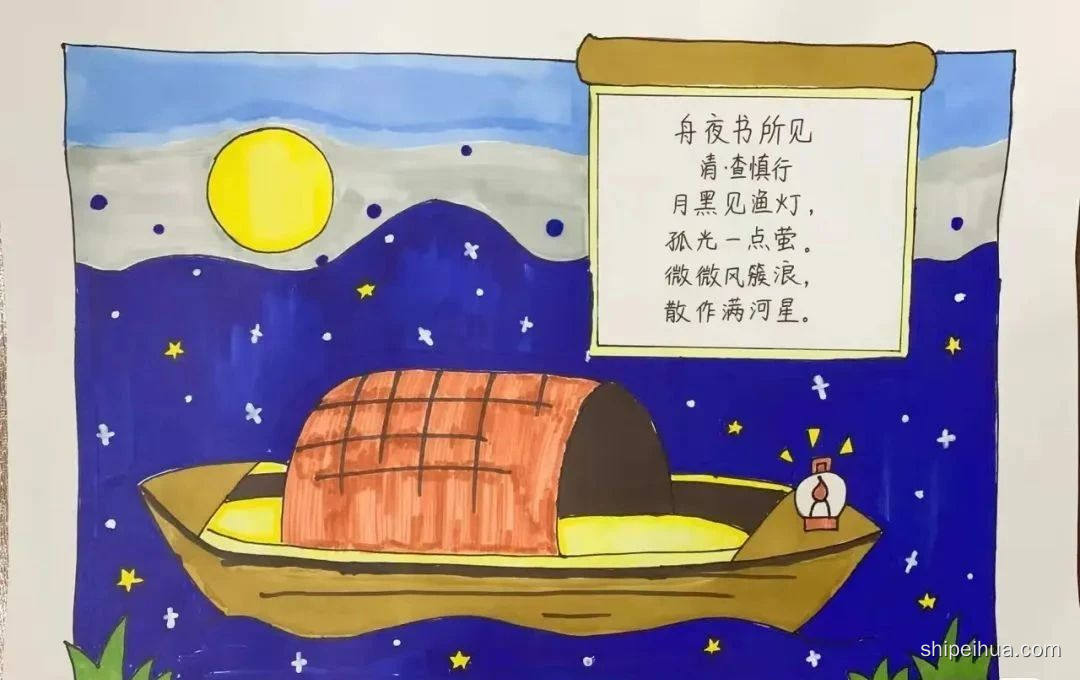 舟夜书所见
清·查慎行
月黑见渔灯，
孤光一点萤。
微微风簇浪，
散作满河星。
shipeihua.com